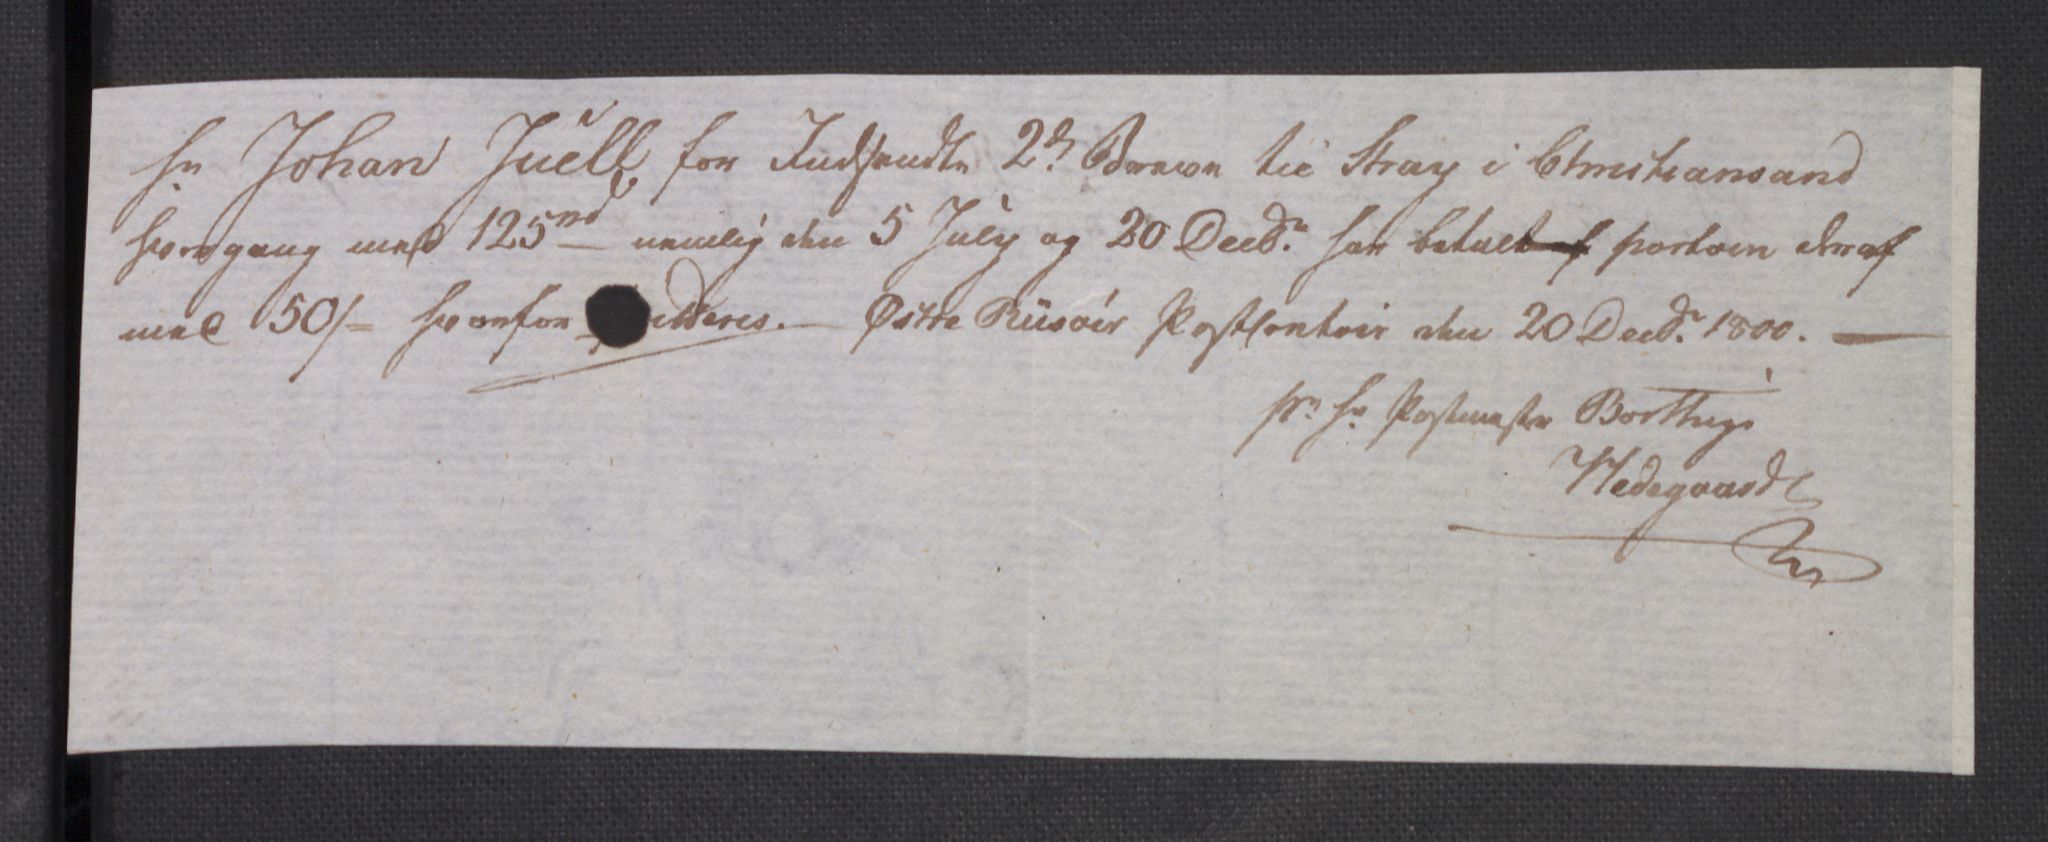 Hr Johan Juell for Indsendte 2de Brewe til Stray i Christiansand
hvergang med 125rd nemlig den 5 July og 20 Decbr har betalt portoen deraf
med 50/- hvorfor itteres. — Østre Riisøer Postcontoir den 20 Decbr 1800. —
pr Hr Postmester Borthigs
Hedegaard